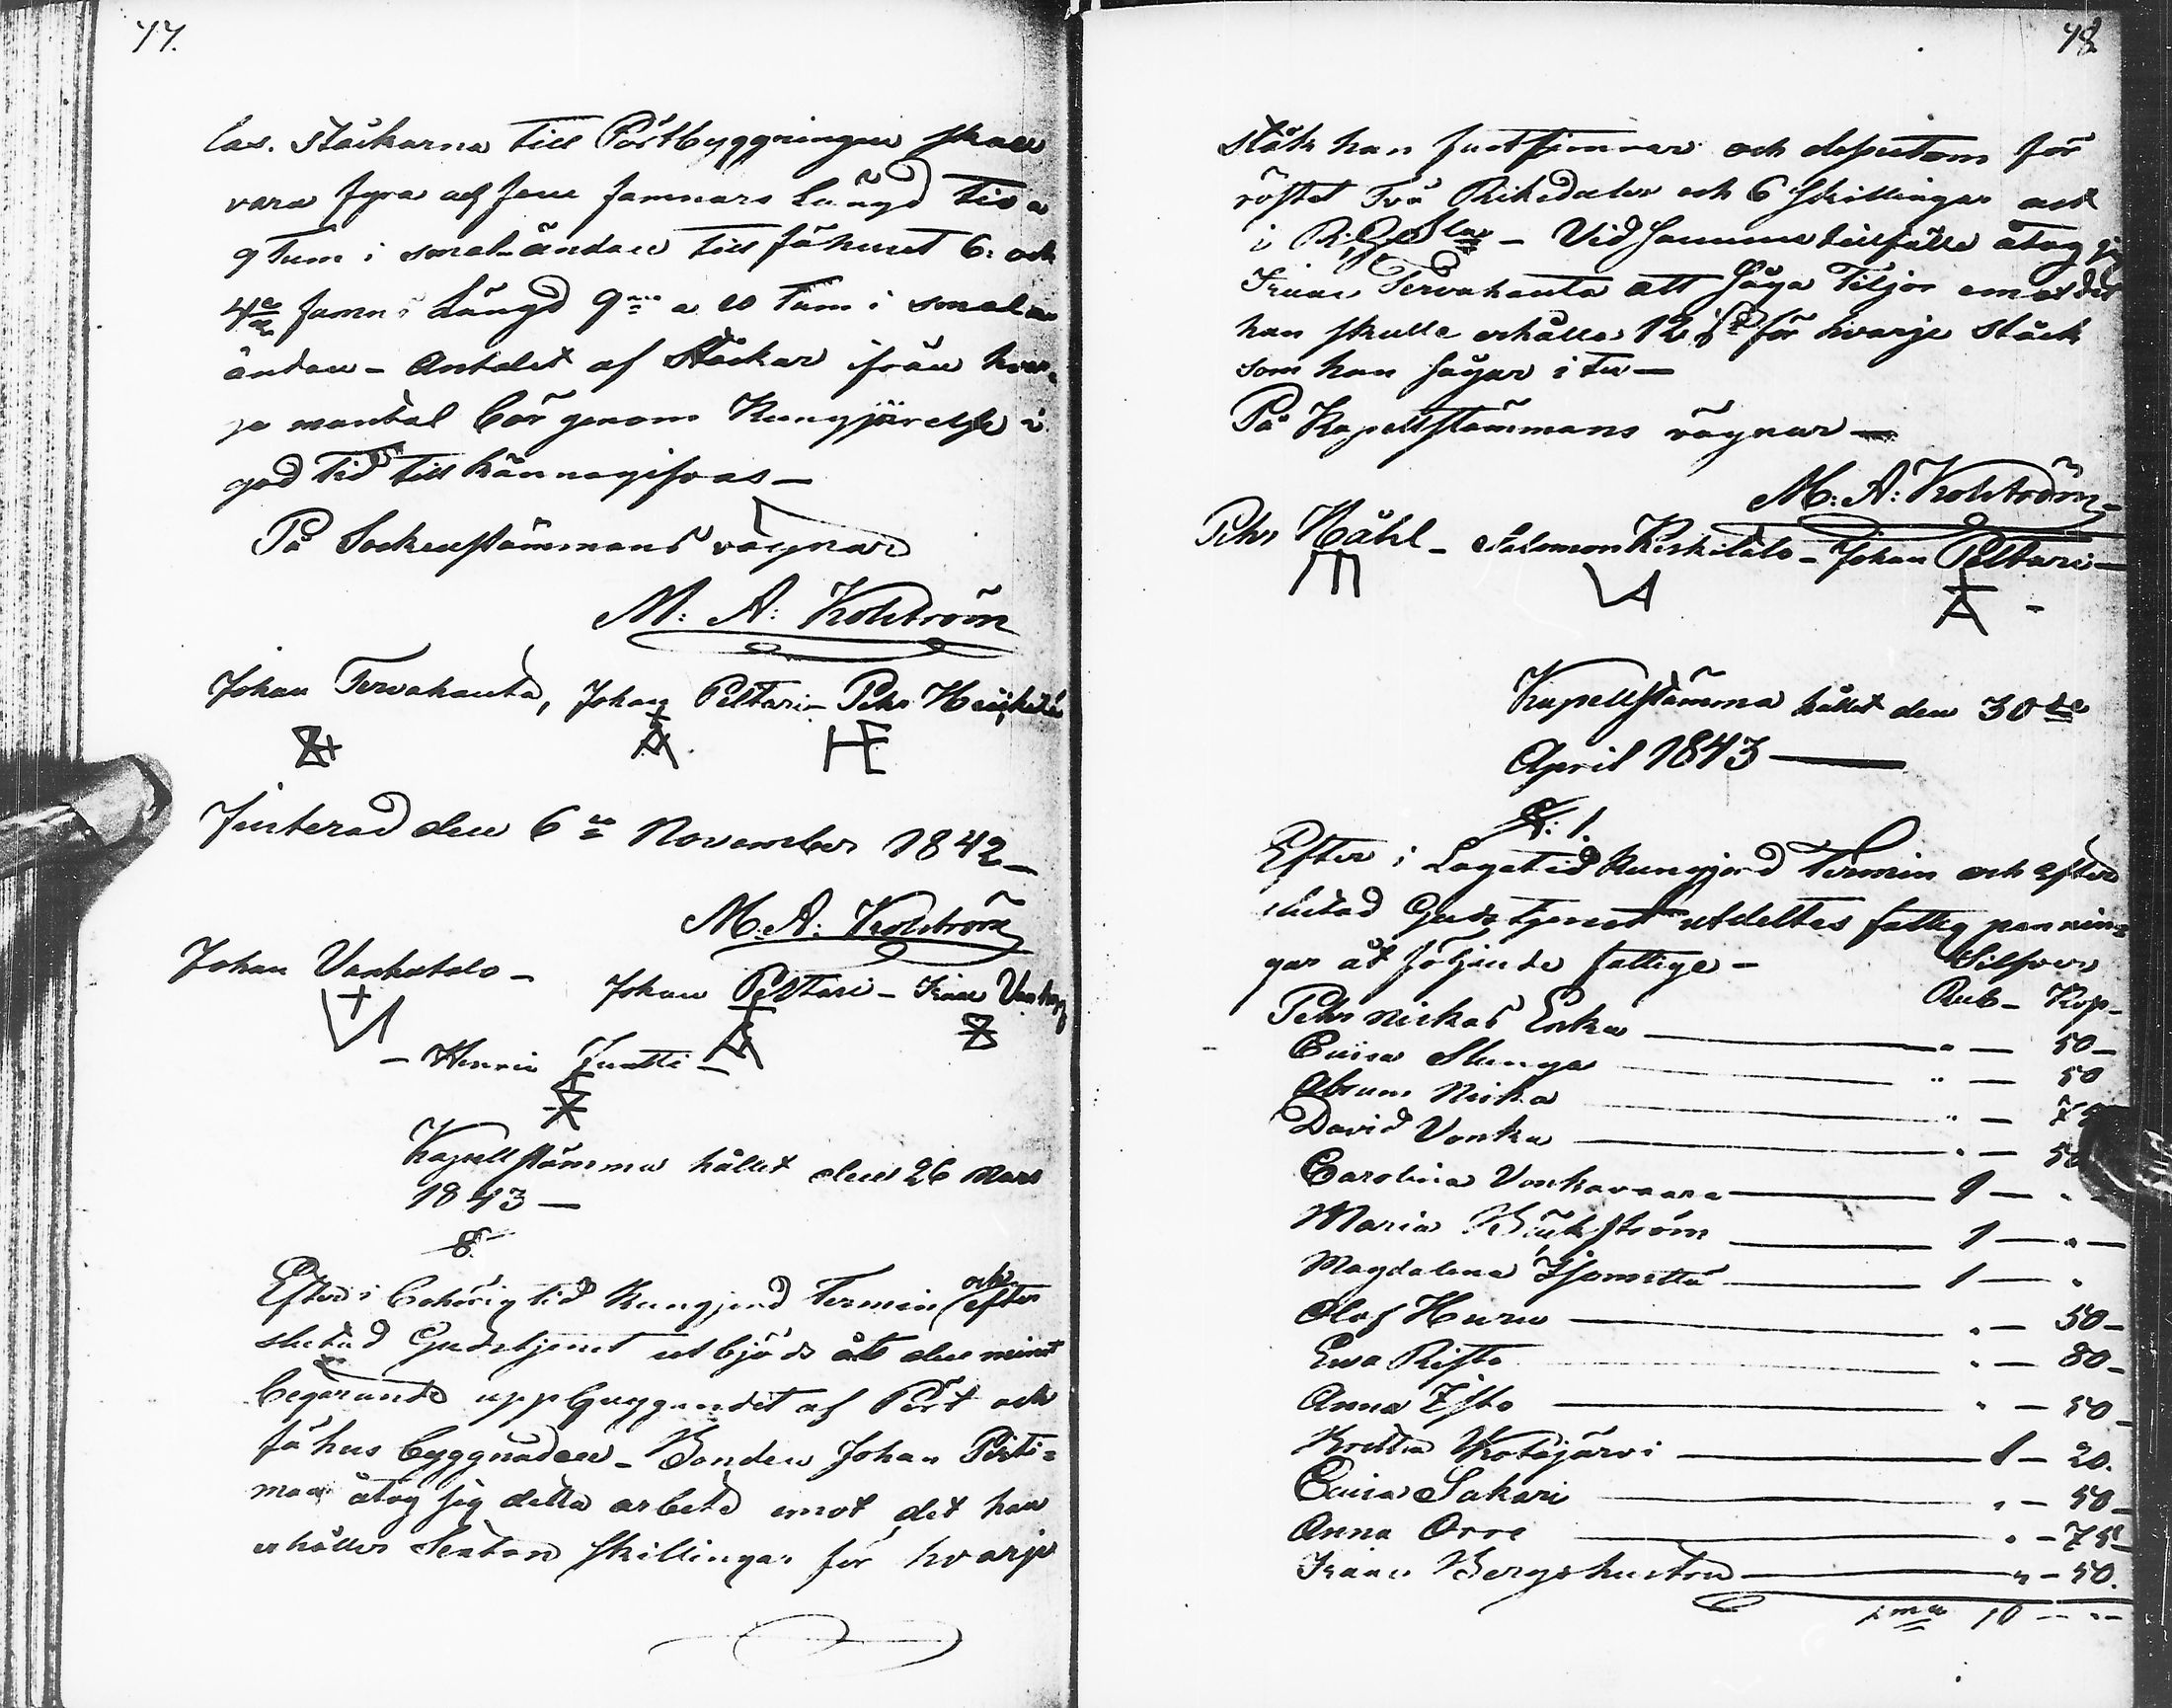 77.
las. Stockarna till Pörtbyggningen skall
vara fyra och fem famnars Längd tio a
9 Tum i smal-ändan till fähuset 6: och
4ra famns Längd 9 a 10 Tum i smal
ändan – Antalet af Stockar ifrån hvar-
je mantal bör genom Kungjörelse i
god tid tillkännagifvas –
På Sockenstämmans vägnar
M: A: Kohlström
Johan Tervahauta, Johan Peltari – Pehr
Justerad den 6te November 1842 –
M: A: Kohlström
Johan Vanhatalo – Johan Peltari – Isaac
– Henric Juntti –
Kapellstämma hållit den 26 Mars
1843 –
§
Efter i behörig tid Kungjord Termin och efter
slutad Gudstjenst utbjöds åt den minst
begärande uppbyggandet af Pört och
fähus byggnaden – Bonden Johan Piiti=
maa åtog sig detta arbete emot det han
erhåller Sexton skillingar för hvarje
78.
stock han fastsinnar och desutom för
röstet Två Riksdaler och 6 Skillingar allt
i – Vid samma tillfälle åtog sig
Isaac Tervahauta att såga Tiljor emot det
han skulle erhålla 12 för hvarje stock
som han sågar i tu –
På Kapellstämmans vägnar –
M: A: Kohlström –
Pehr Ståhl – Salomon Keskitalo – Johan Peltari –
Kapellstämma hållit den 30de
April 1843 –
§: 1.
Efter i Laga tid Kungjord Termin och efter
slutad Gudstjenst utdeltes fattig pennin=
gar åt följande fattige – Silfver
Rub – Kop –
Pehr Niskas Enka – " – 50 –
Caisa Slunga – " – 50
Abram Niska – " – 75
David Vonka – " – 50
Carolina Vonkavaara – 1 – "
Maria Bäckström – 1 – " –
Magdalena Isometsä – 1 – "
Olof Huru – " – 50 –
Ewa Risto – " – 80 –
Anna Isto – " – 50 –
Kotajärvi – 1 – 20.
Caisa Sakari – " – 50 –
Anna Orre – " – 75 –
Isaac Bergs hustru – " – 50.
Sma 10 – " –